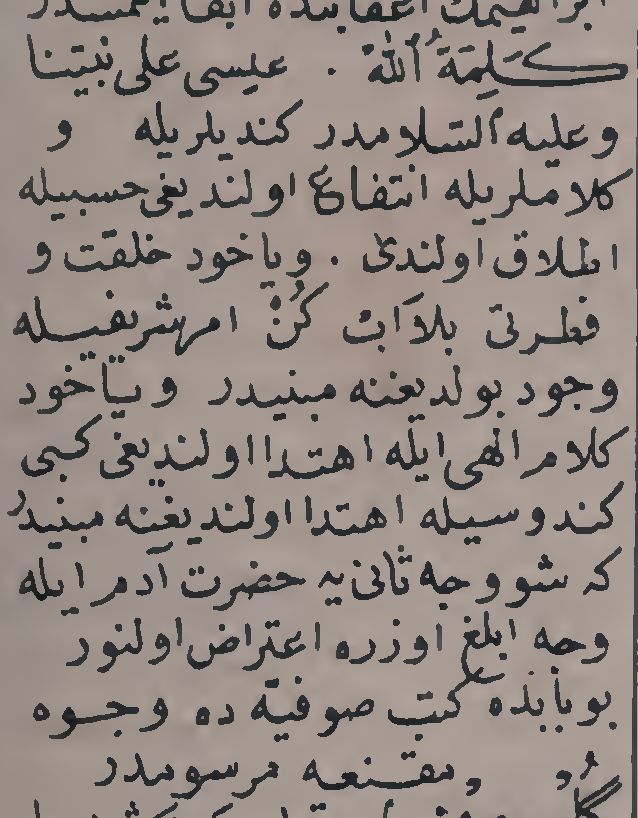 ابراهيمك اعقابنده ابقا ايتمسدر
كَلِمَةُ اللّٰه . عيسى على نبيّنا
وعليه السّلامدر كنديلريله و
كلاملريله انتفاع اولنديغى حسبيله
اطلاق اولندى . وياخود خلقت و
فطرتى بلااب كُنْ امر شريفيله
وجود بولديغنه مبنيدر وياخود
كلام الهى ايله اهتدا اولنديغى كبى
كندوسيله اهتدا اولنديغنه مبنيدر
كه شو وجه ثانى يه حضرت ادم ايله
وجه ابلغ اوزره اعتراض اولنور
بو بابده كتب صوفيّه ده وجوه
مقنعه مرسومدر